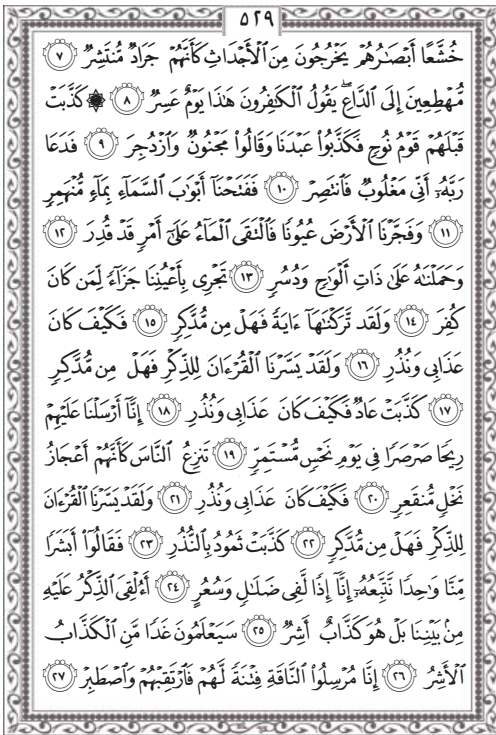 ٥٢٩
خُشَّعًا أَبْصَٰرُهُمْ يَخْرُجُونَ مِنَ ٱلْأَجْدَاثِ كَأَنَّهُمْ جَرَادٌ مُّنتَشِرٌ ٧
مُّهْطِعِينَ إِلَى ٱلدَّاعِ ۖ يَقُولُ ٱلْكَٰفِرُونَ هَٰذَا يَوْمٌ عَسِرٌ ٨ ۞ كَذَّبَتْ
قَبْلَهُمْ قَوْمُ نُوحٍ فَكَذَّبُوا۟ عَبْدَنَا وَقَالُوا۟ مَجْنُونٌ وَٱزْدُجِرَ ٩ فَدَعَا
رَبَّهُۥٓ أَنِّى مَغْلُوبٌ فَٱنتَصِرْ ١٠ فَفَتَحْنَآ أَبْوَٰبَ ٱلسَّمَآءِ بِمَآءٍ مُّنْهَمِرٍ
١١ وَفَجَّرْنَا ٱلْأَرْضَ عُيُونًا فَٱلْتَقَى ٱلْمَآءُ عَلَىٰٓ أَمْرٍ قَدْ قُدِرَ ١٢
وَحَمَلْنَٰهُ عَلَىٰ ذَاتِ أَلْوَٰحٍ وَدُسُرٍ ١٣ تَجْرِى بِأَعْيُنِنَا جَزَآءً لِّمَن كَانَ
كُفِرَ ١٤ وَلَقَد تَّرَكْنَٰهَآ ءَايَةً فَهَلْ مِن مُّدَّكِرٍ ١٥ فَكَيْفَ كَانَ
عَذَابِى وَنُذُرِ ١٦ وَلَقَدْ يَسَّرْنَا ٱلْقُرْءَانَ لِلذِّكْرِ فَهَلْ مِن مُّدَّكِرٍ
١٧ كَذَّبَتْ عَادٌ فَكَيْفَ كَانَ عَذَابِى وَنُذُرِ ١٨ إِنَّآ أَرْسَلْنَا عَلَيْهِمْ
رِيحًا صَرْصَرًا فِى يَوْمِ نَحْسٍ مُّسْتَمِرٍّ ١٩ تَنزِعُ ٱلنَّاسَ كَأَنَّهُمْ أَعْجَازُ
نَخْلٍ مُّنقَعِرٍ ٢٠ فَكَيْفَ كَانَ عَذَابِى وَنُذُرِ ٢١ وَلَقَدْ يَسَّرْنَا ٱلْقُرْءَانَ
لِلذِّكْرِ فَهَلْ مِن مُّدَّكِرٍ ٢٢ كَذَّبَتْ ثَمُودُ بِٱلنُّذُرِ ٢٣ فَقَالُوٓا۟ أَبَشَرًا
مِّنَّا وَٰحِدًا نَّتَّبِعُهُۥٓ إِنَّآ إِذًا لَّفِى ضَلَٰلٍ وَسُعُرٍ ٢٤ أَءُلْقِىَ ٱلذِّكْرُ عَلَيْهِ
مِنۢ بَيْنِنَا بَلْ هُوَ كَذَّابٌ أَشِرٌ ٢٥ سَيَعْلَمُونَ غَدًا مَّنِ ٱلْكَذَّابُ
ٱلْأَشِرُ ٢٦ إِنَّا مُرْسِلُوا۟ ٱلنَّاقَةِ فِتْنَةً لَّهُمْ فَٱرْتَقِبْهُمْ وَٱصْطَبِرْ ٢٧